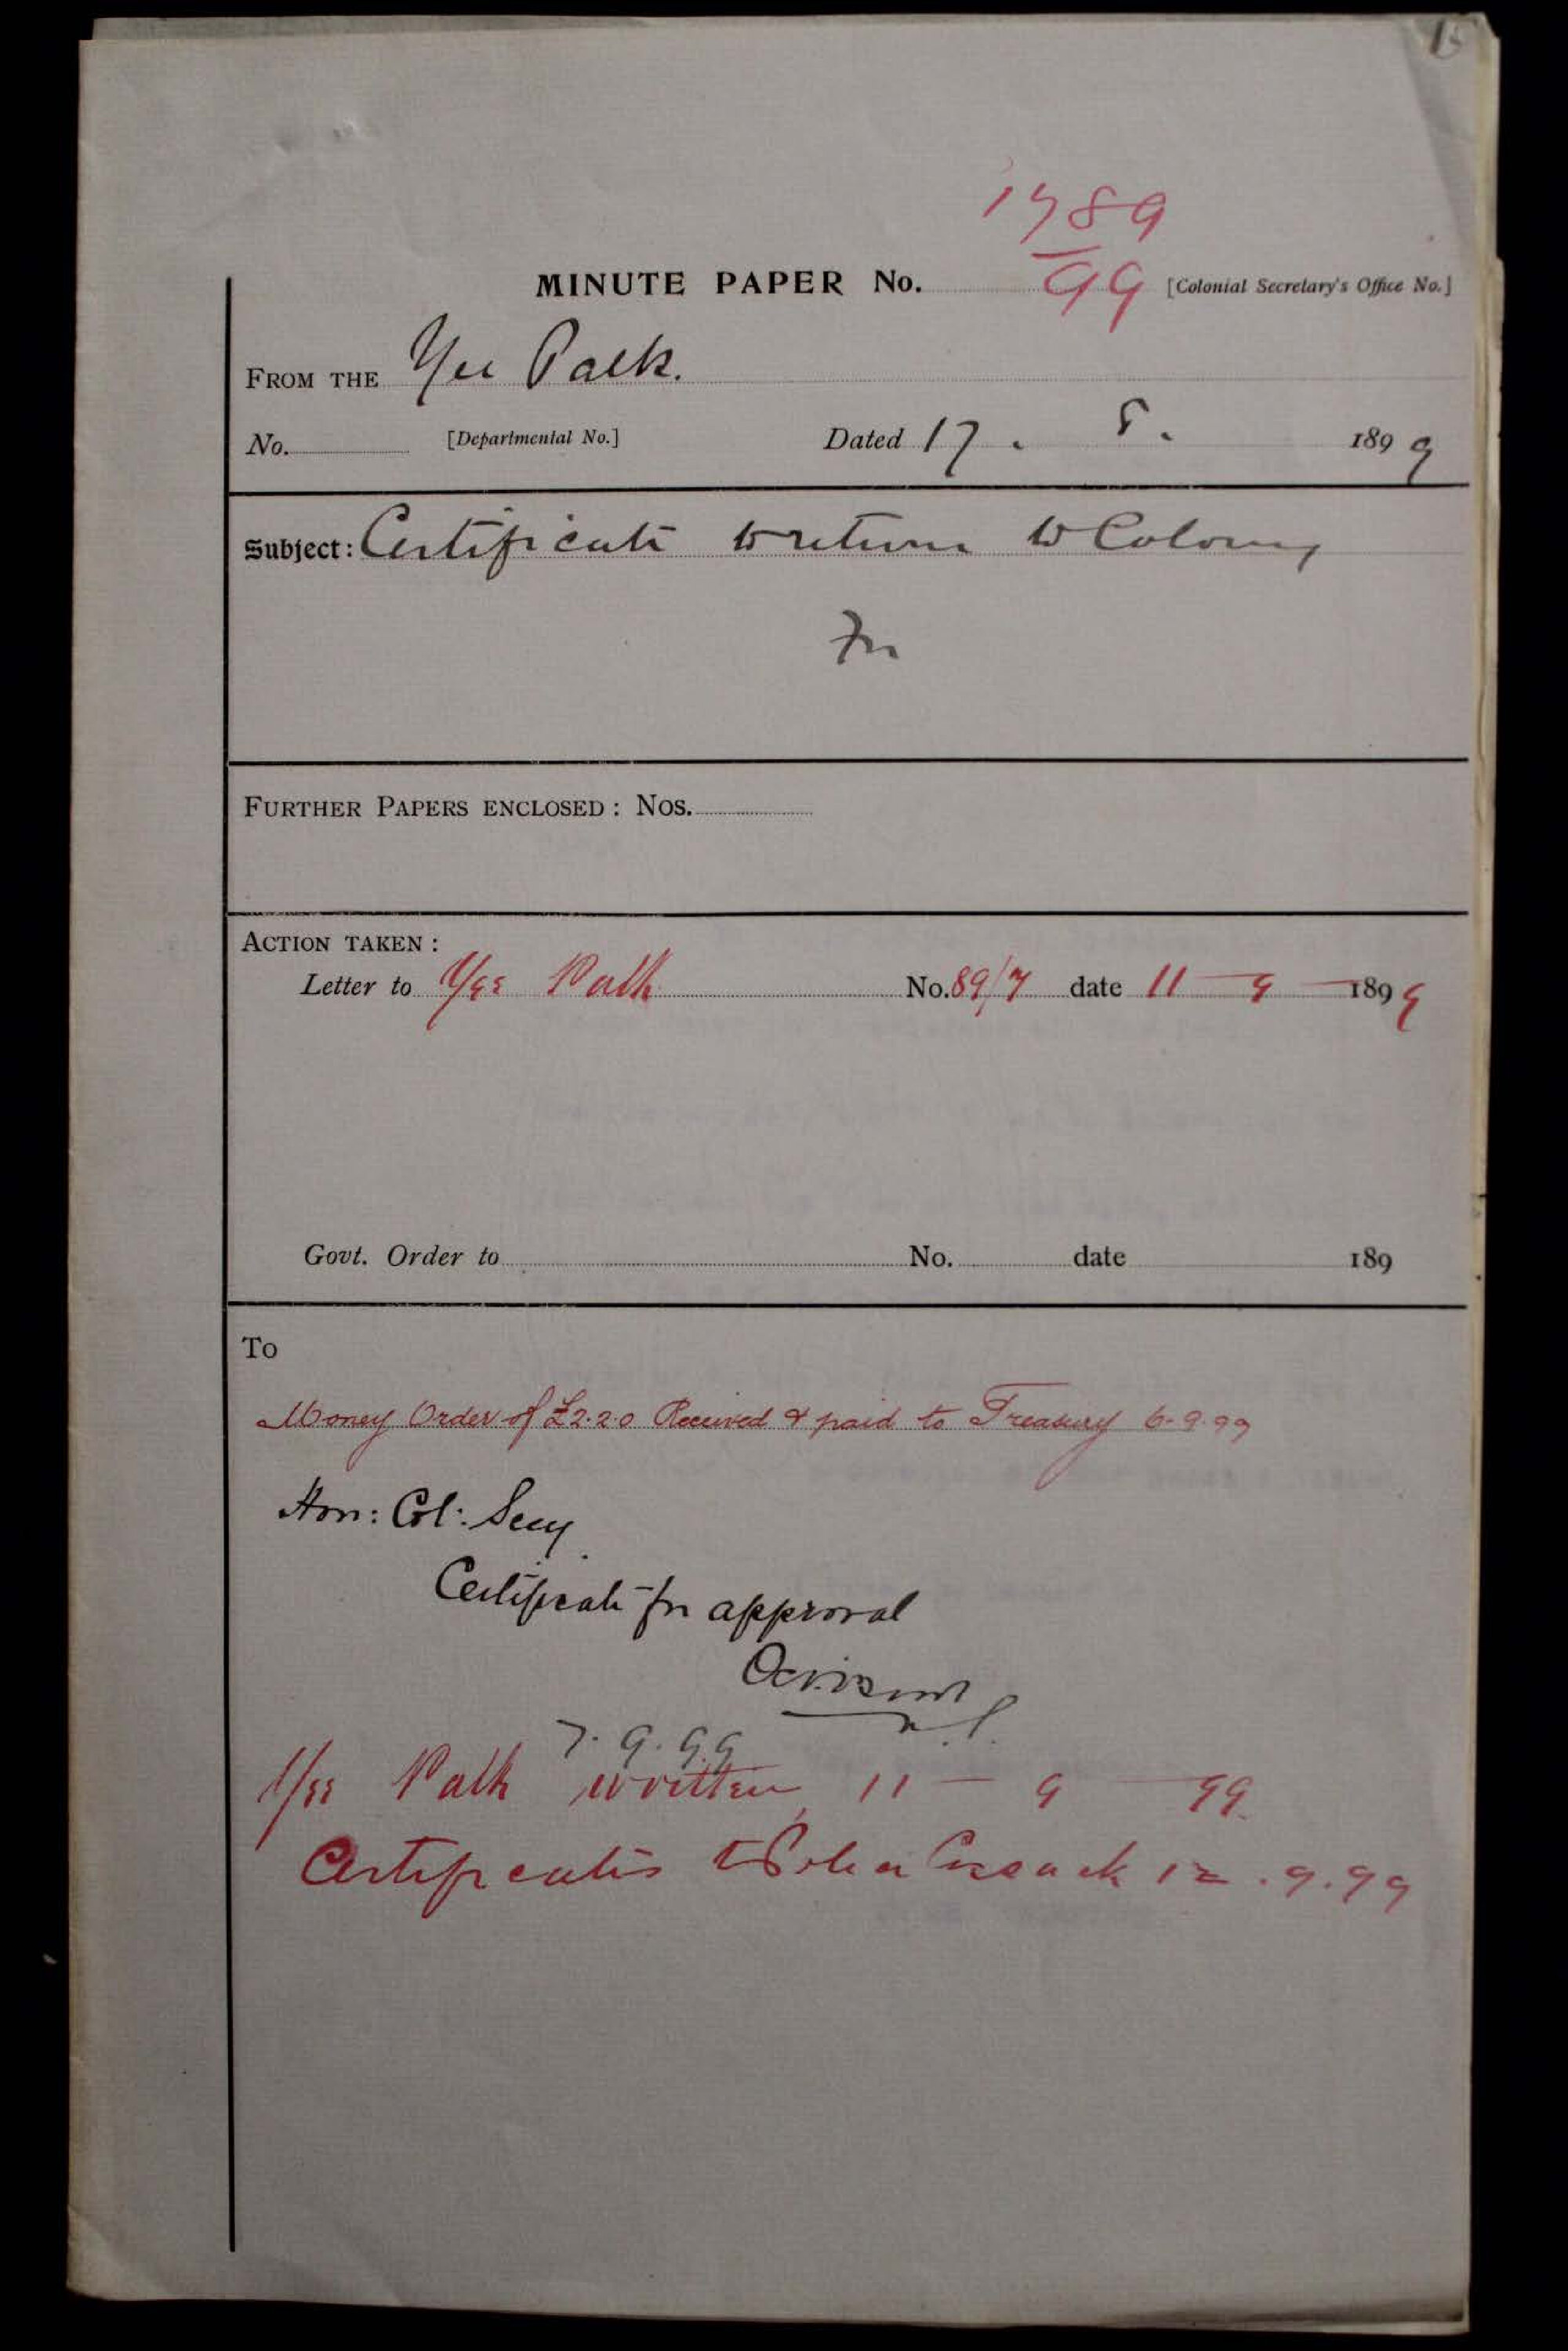 15
1789
99
MINUTE PAPER No. [Colonial Secretary's Office No.]
FROM THE Yee Palk.
No. [Departmental No.] Dated 17. 8. 1899
Subject: Certificate to return to Colony
For
FURTHER PAPERS ENCLOSED: Nos.
ACTION TAKEN:
Letter to Yee Palk No. 89/7 date 11 – 9 – 1899
Govt. Order to No. date 189
To
Money Order of £2.2.0 Received & paid to Treasury 6.9.99
Hon: Col: Secy
Certificate for approval
7.9.99
Yee Palk written 11 – 9 99
Certificates to Police Cossack 12.9.99